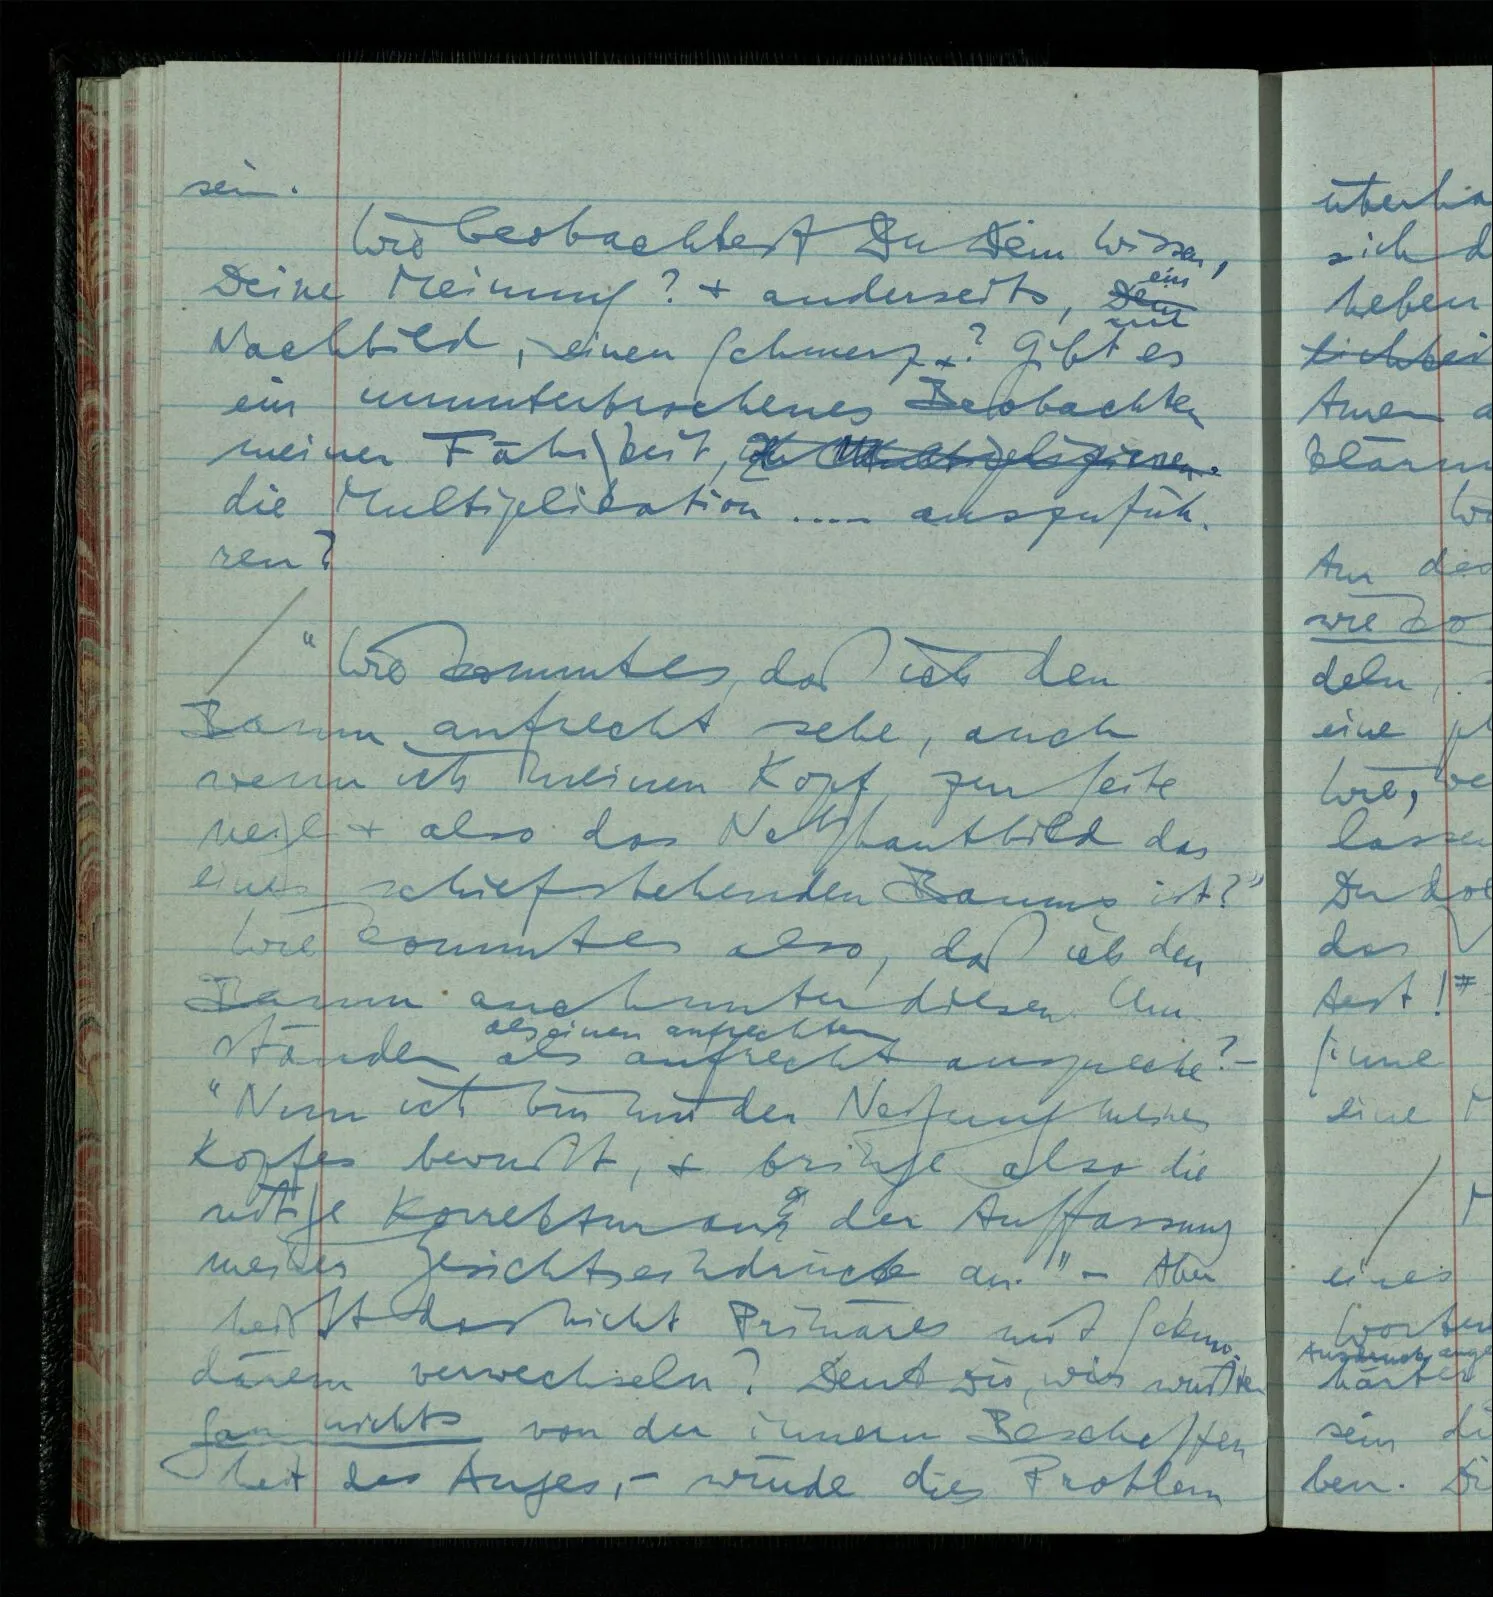 sein.
Wie beobachtest Du Dein Wissen,
Deine Meinung? & anderseits, ein
Nachbild, einen Schmerz? Gibt es
ein ununterbrochenes Beobachten
meiner Fähigkeit,
die Multiplikation ..... auszufüh-
ren?
"Wie kommt es, daß ich den
Baum aufrecht sehe, auch
wenn ich meinen Kopf zur Seite
neige & also das Netzhautbild das
eines schiefstehenden Baums ist?"
Wie kommt es also, daß ich den
Baum auch unter diesen Um-
als einen aufrechten
ständen als aufrecht anspreche? –
"Nun ich bin mir der Neigung meines
Kopfes bewußt, & bringe also die
nötige Korrektur an der Auffassung
meiner Gesichtseindrücke an." – Aber
heißt das nicht Primäres mit Sekun-
därem verwechseln? Denk Dir, wir wüßten
gar nichts von der innern Beschaffen-
heit des Auges, – würde dies Problem
sich d
heben
Amen a
eine
das
test!
eine M
eines
sein di
ben. Di